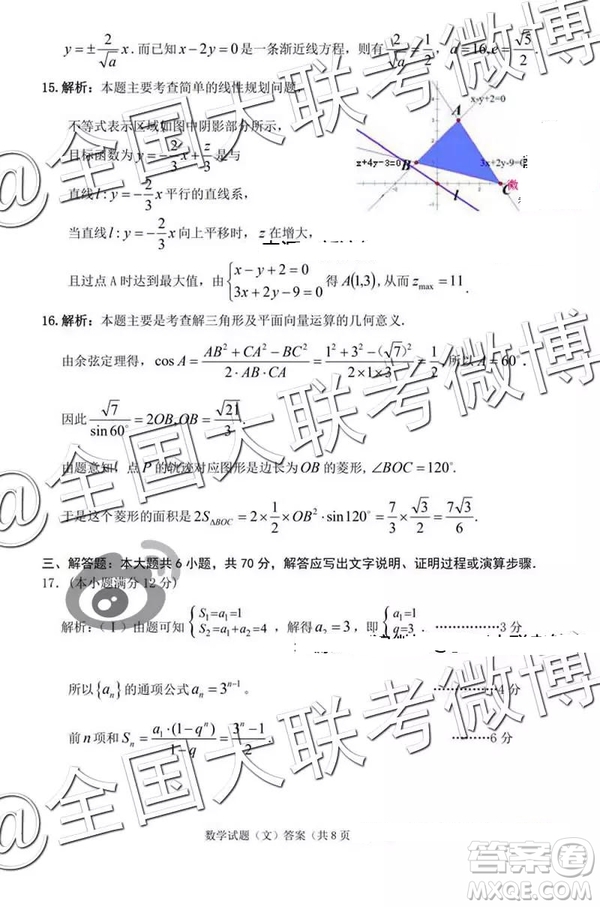 y=±2/√a x. 而已知 x−2y=0 是一条渐近线方程，则有 2/√a = 1/2， a=16,e=√5/2.
15.解析：本题主要考查简单的线性规划问题.
不等式表示区域如图中阴影部分所示，
目标函数为 y=−2/3 x+z/3 是与
直线 l：y=−2/3 x 平行的直线系，
当直线 l：y=−2/3 x 向上平移时，z 在增大，
x-y+2=0
A
x+4y-3=0
B
3x+2y-9=0
C
l
且过点 A 时达到最大值，由 {x−y+2=0 3x+2y−9=0 得 A(1,3)，从而 z_max=11.
16.解析：本题主要是考查解三角形及平面向量运算的几何意义.
由余弦定理得， cos A = (AB²+CA²−BC²)/(2·AB·CA) = (1²+3²−(√7)²)/(2×1×3) = 1/2，所以 A=60°.
因此 √7/sin60° = 2OB,OB = √21/3.
由题意知，点 P 的轨迹对应图形是边长为 OB 的菱形，∠BOC=120°.
于是这个菱形的面积是 2S_ΔBOC = 2×1/2×OB²·sin120° = 7/3×√3/2 = 7√3/6
三、解答题：本大题共 6 小题，共 70 分，解答应写出文字说明、证明过程或演算步骤.
17．（本小题满分 12 分）
解析：（Ⅰ）由题可知 {S₁=a₁=1 S₂=a₁+a₂=4 ，解得 a₂=3，即 {a₁=1 q=3 . ⋯⋯⋯⋯⋯3 分
所以{aₙ}的通项公式 aₙ=3ⁿ⁻¹。 ⋯⋯⋯⋯4 分
前 n 项和 Sₙ = a₁·(1−qⁿ)/(1−q) = (3ⁿ−1)/2. ⋯⋯⋯6 分
数学试题（文）答案（共 8 页
@全国大联考微博
@全国大联考微博
@全国大联考微博
答案圈
MXQE.COM